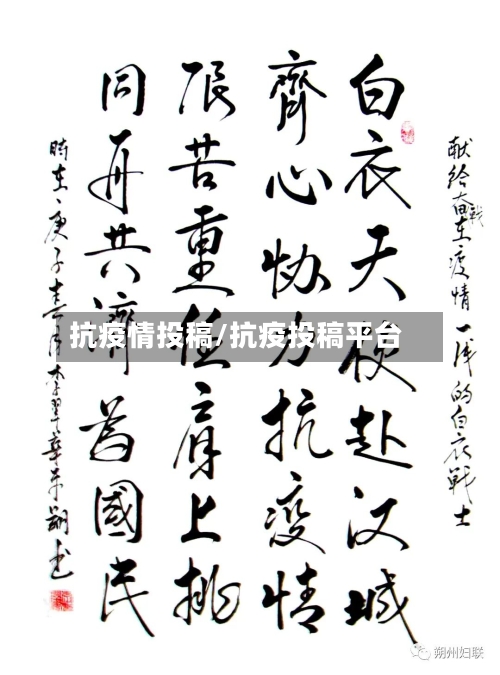 献给奋战在疫情一线的白衣戰士
白衣天使赴汉城
齊心协力抗疫情
艰苦重任肩上挑
同舟共濟为國民
時在庚子春月李翠華
抗疫情投稿/抗疫投稿平台
朔州妇联